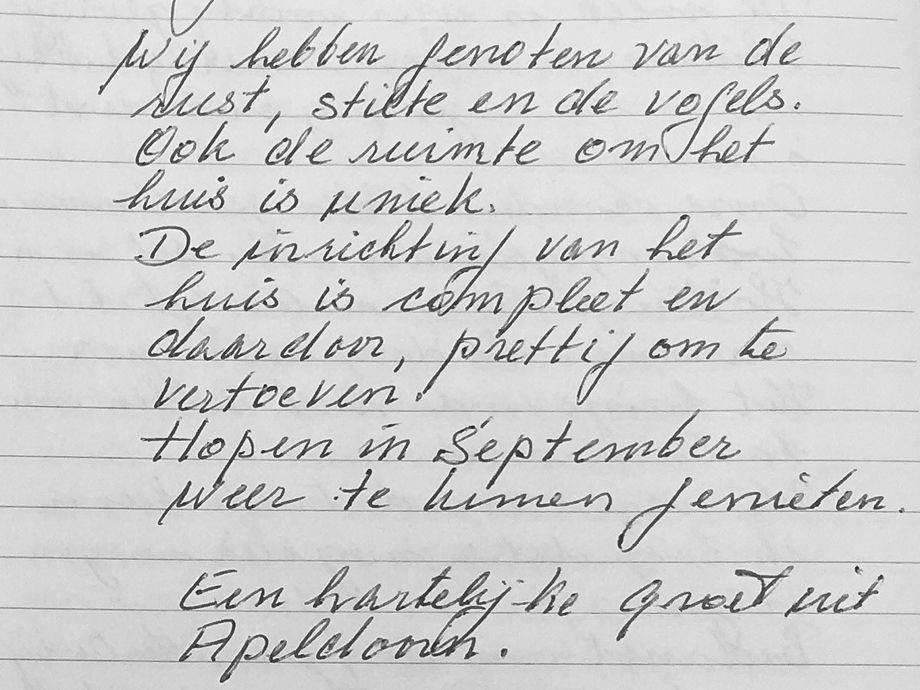 Wij hebben genoten van de
rust, stilte en de vogels.
Ook de ruimte om het
huis is uniek.
De inrichting van het
huis is compleet en
daardoor, prettig om te
vertoeven.
Hopen in September
weer te kunnen genieten.
Een hartelijke groet uit
Apeldoorn.